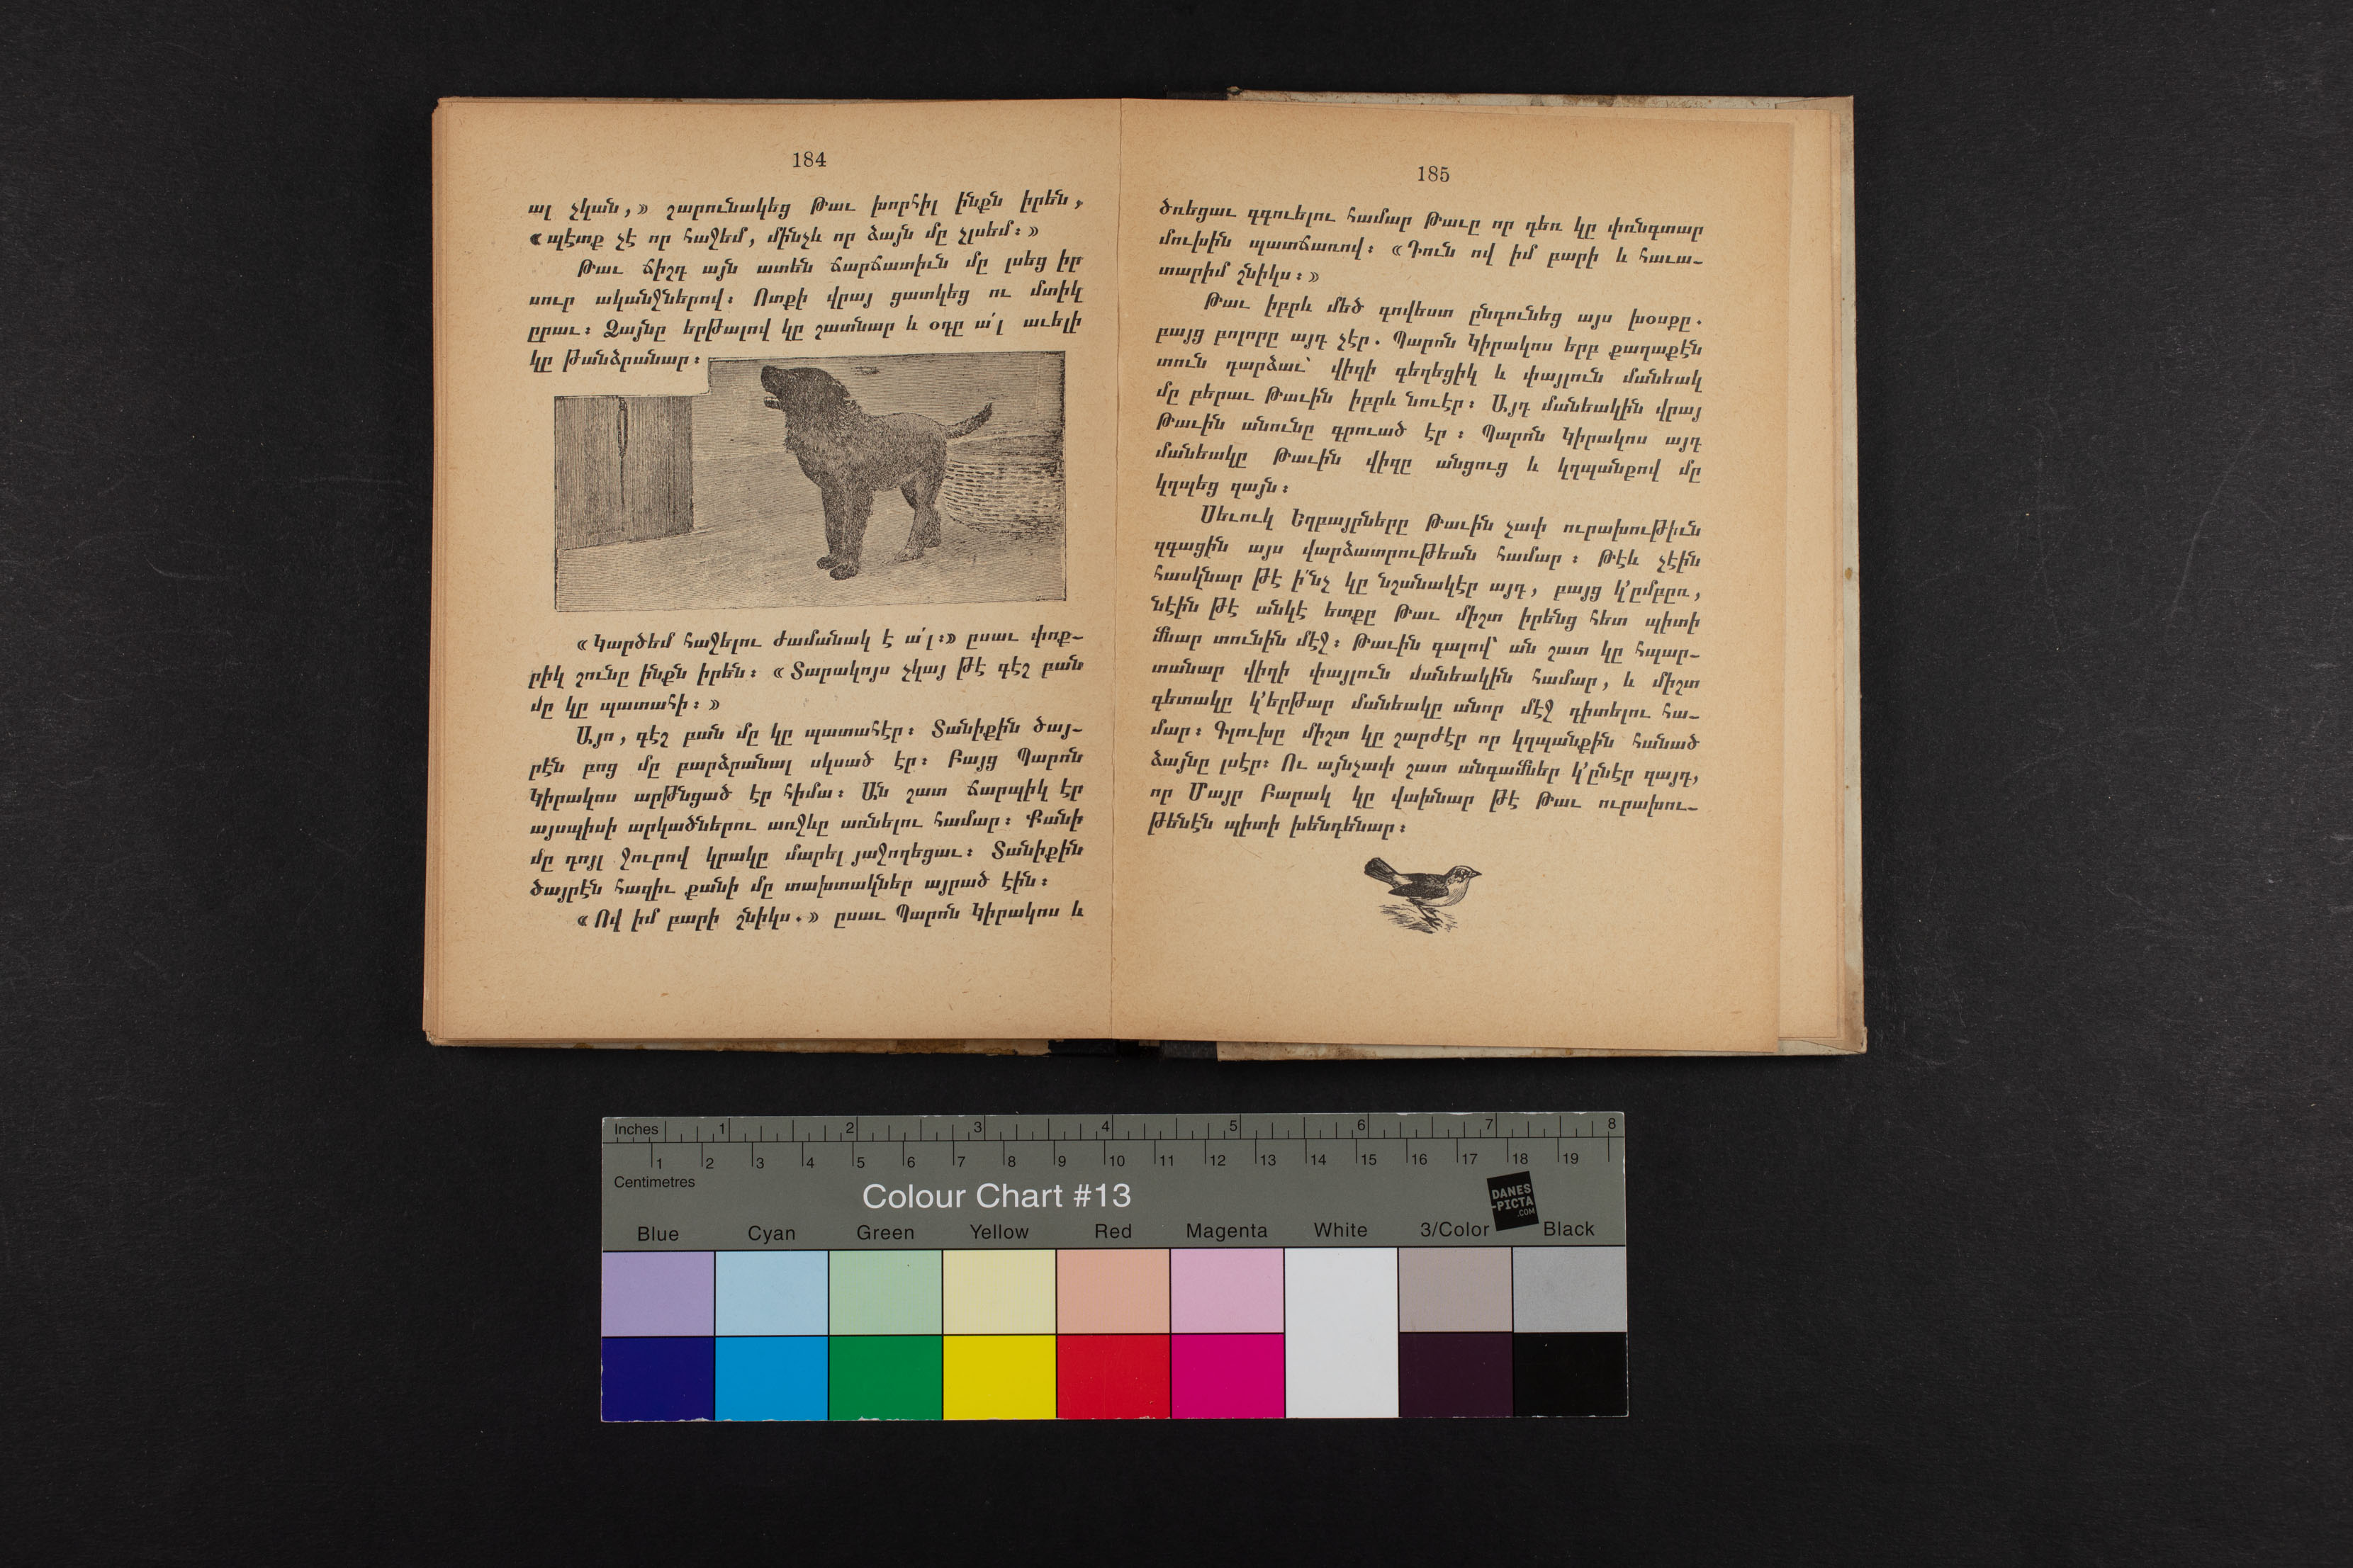 184
ալ չկան,» շարունակեց Թաւ խորհիլ ինքն իրեն,
«պէտք չէ որ հաջեմ, մինչև որ ձայն մը չլսեմ։»
Թաւ ճիշդ այն ատեն ճարճատիւն մը լսեց իր
սուր ականջներով։ Ոտքի վրայ ցատկեց ու մտիկ
ըրաւ։ Ձայնը երթալով կը շատնար և օդը ա՛լ աւելի
կը թանձրանար։
«Կարծեմ հաջելու ժամանակ է ա՛լ։» ըսաւ փոք-
րիկ շունը ինքն իրեն։ «Տարակոյս չկայ թէ գէշ բան
մը կը պատահի։»
Այո, գէշ բան մը կը պատահէր։ Տանիքին ծայ-
րէն բոց մը բարձրանալ սկսած էր։ Բայց Պարոն
Կիրակոս արթնցած էր հիմա։ Ան շատ ճարպիկ էր
այսպիսի արկածներու առջևը առնելու համար։ Քանի
մը դոյլ ջուրով կրակը մարել յաջողեցաւ։ Տանիքին
ծայրէն հազիւ քանի մը տախտակներ այրած էին։
«Ով իմ բարի շնիկս.» ըսաւ Պարոն Կիրակոս և
185
ծռեցաւ գգուելու համար Թաւը որ դեռ կը փռնգտար
մուխին պատճառով։ «Դուն ով իմ բարի և հաւա-
տարիմ շնիկս։»
Թաւ իբրև մեծ գովեստ ընդունեց այս խօսքը.
բայց բոլորը այդ չէր. Պարոն Կիրակոս երբ քաղաքէն
տուն դարձաւ՝ վիզի գեղեցիկ և փայլուն մանեակ
մը բերաւ Թաւին իբրև նուէր։ Այդ մանեակին վրայ
Թաւին անունը գրուած էր։ Պարոն Կիրակոս այդ
մանեակը Թաւին վիզը անցուց և կղպանքով մը
կղպեց զայն։
Սեւուկ Եղբայրները Թաւին չափ ուրախութիւն
զգացին այս վարձատրութեան համար։ Թէև չէին
հասկնար թէ ի՛նչ կը նշանակէր այդ, բայց կ՚ըմբըռ,
նէին թէ անկէ ետքը Թաւ միշտ իրենց հետ պիտի
մնար տունին մէջ։ Թաւին գալով՝ ան շատ կը հպար-
տանար վիզի փայլուն մանեակին համար, և միշտ
գետակը կ՚երթար մանեակը անոր մէջ դիտելու հա-
մար։ Գլուխը միշտ կը շարժէր որ կղպանքին հանած
ձայնը լսէր։ Ու այնչափ շատ անգամներ կ՚ընէր զայդ,
որ Մայր Բարակ կը վախնար թէ Թաւ ուրախու-
թենէն պիտի խենդենար։
Inches 1 2 3 4 5 6 7 8
1 2 3 4 5 6 7 8 9 10 11 12 13 14 15 16 17 18 19
Centimetres
Colour Chart #13
DANES
-PICTA
.COM
Blue Cyan Green Yellow Red Magenta White 3/Color Black